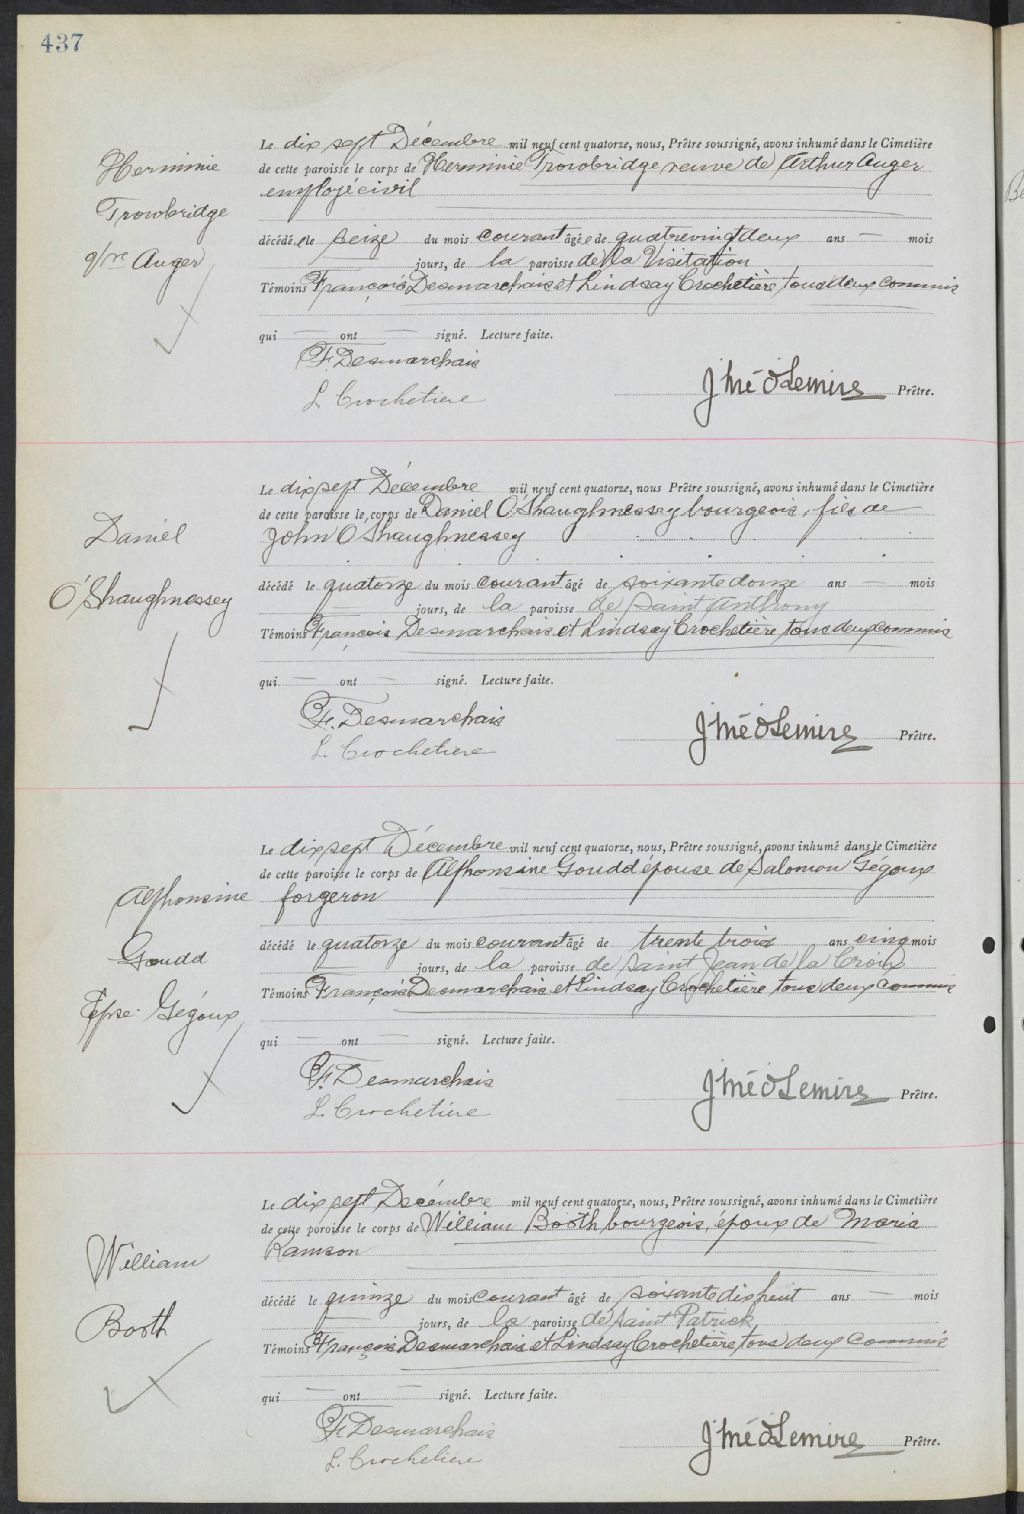 437
Herminie
Trowbridge
Vve Auger
Le dix sept Décembre mil neuf cent quatorze, nous, Prêtre soussigné, avons inhumé dans le Cimetière
de cette paroisse le corps de Herminie Trowbridge veuve de Arthur Auger
employé civil
décédée le seize du mois courant âgée de quatrevingtdeux ans — mois
— jours, de la paroisse de la Visitation
Témoins François Desmarchais et Lindsay Crochetière tous deux commis
qui — ont — signé. Lecture faite.
F. Desmarchais
L. Crochetiere
J Mé O Lemire Prêtre.
Daniel
O'Shaughnessey
Le dix sept Décembre mil neuf cent quatorze, nous Prêtre soussigné, avons inhumé dans le Cimetière
de cette paroisse le corps de Daniel O'Shaughnessey bourgeois, fils de
John O'Shaughnessey
décédé le quatorze du mois courant âgé de soixante douze ans — mois
— jours, de la paroisse de Saint Anthony
Témoins François Desmarchais et Lindsay Crochetière tous deux commis
qui — ont — signé. Lecture faite.
F. Desmarchais
L. Crochetiere
J Mé O Lemire Prêtre.
Alphonsine
Goudd
Épse Gégoux
Le dix sept Décembre mil neuf cent quatorze, nous, Prêtre soussigné, avons inhumé dans le Cimetière
de cette paroisse le corps de Alphonsine Goudd épouse de Salomon Gégoux
forgeron
décédé le quatorze du mois courant âgé de trente trois ans cinq mois
— jours, de la paroisse de Saint Jean de la Croix
Témoins François Desmarchais et Lindsay Crochetière tous deux commis
qui — ont — signé. Lecture faite.
F. Desmarchais
L. Crochetiere
J Mé O Lemire Prêtre.
William
Booth
Le dix sept Decembre mil neuf cent quatorze, nous, Prêtre soussigné, avons inhumé dans le Cimetière
de cette paroisse le corps de William Booth bourgeois, époux de Maria
Ramson
décédé le quinze du mois courant âgé de soixante dix huit ans — mois
— jours, de la paroisse de Saint Patrick
Témoins François Desmarchais et Lindsay Crochetière tous deux commis
qui — ont — signé. Lecture faite.
F. Desmarchais
L. Crochetiere
J Mé O Lemire Prêtre.